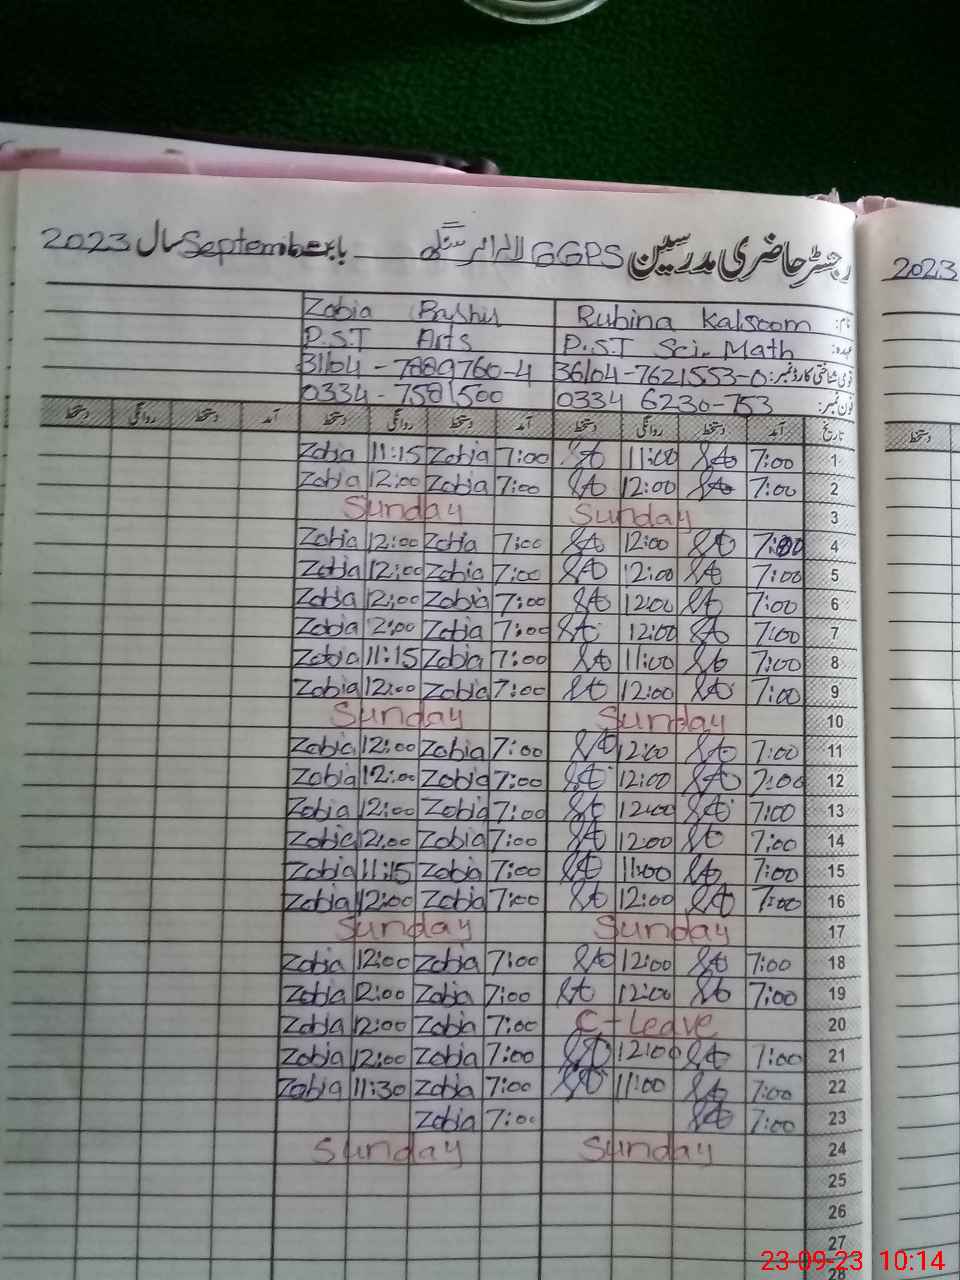 رجسٹر حاضری مدرسین GGPS بابت September سال 2023
2023
نام: Rubina Kalsoom Zobia Bashir
عہدہ: P.S.T Sci. Math P.S.T Arts
قومی شناختی کارڈ نمبر: 36104-7621553-0 31104-7889760-4
فون نمبر: 0334 6230-753 0334-7581500
تاریخ آمد دستخط روانگی دستخط آمد دستخط روانگی دستخط آمد دستخط روانگی دستخط
دستخط
1 7:00 11:00 7:00 Zobia 11:15 Zobia
2 7:00 12:00 7:00 Zobia 12:00 Zobia
3 Sunday Sunday
4 7:00 12:00 7:00 Zobia 12:00 Zobia
5 7:00 12:00 7:00 Zobia 12:00 Zobia
6 7:00 12:00 7:00 Zobia 12:00 Zobia
7 7:00 12:00 7:00 Zobia 12:00 Zobia
8 7:00 11:00 7:00 Zobia 11:15 Zobia
9 7:00 12:00 7:00 Zobia 12:00 Zobia
10 Sunday Sunday
11 7:00 12:00 7:00 Zobia 12:00 Zobia
12 7:00 12:00 7:00 Zobia 12:00 Zobia
13 7:00 12:00 7:00 Zobia 12:00 Zobia
14 7:00 12:00 7:00 Zobia 12:00 Zobia
15 7:00 11:00 7:00 Zobia 11:15 Zobia
16 7:00 12:00 7:00 Zobia 12:00 Zobia
17 Sunday Sunday
18 7:00 12:00 7:00 Zobia 12:00 Zobia
19 7:00 12:00 7:00 Zobia 12:00 Zobia
20 C-Leave 7:00 Zobia 12:00 Zobia
21 7:00 12:00 7:00 Zobia 12:00 Zobia
22 7:00 11:00 7:00 Zobia 11:30 Zobia
23 7:00 7:00 Zobia
24 Sunday Sunday
25
26
27
28
23-09-23 10:14